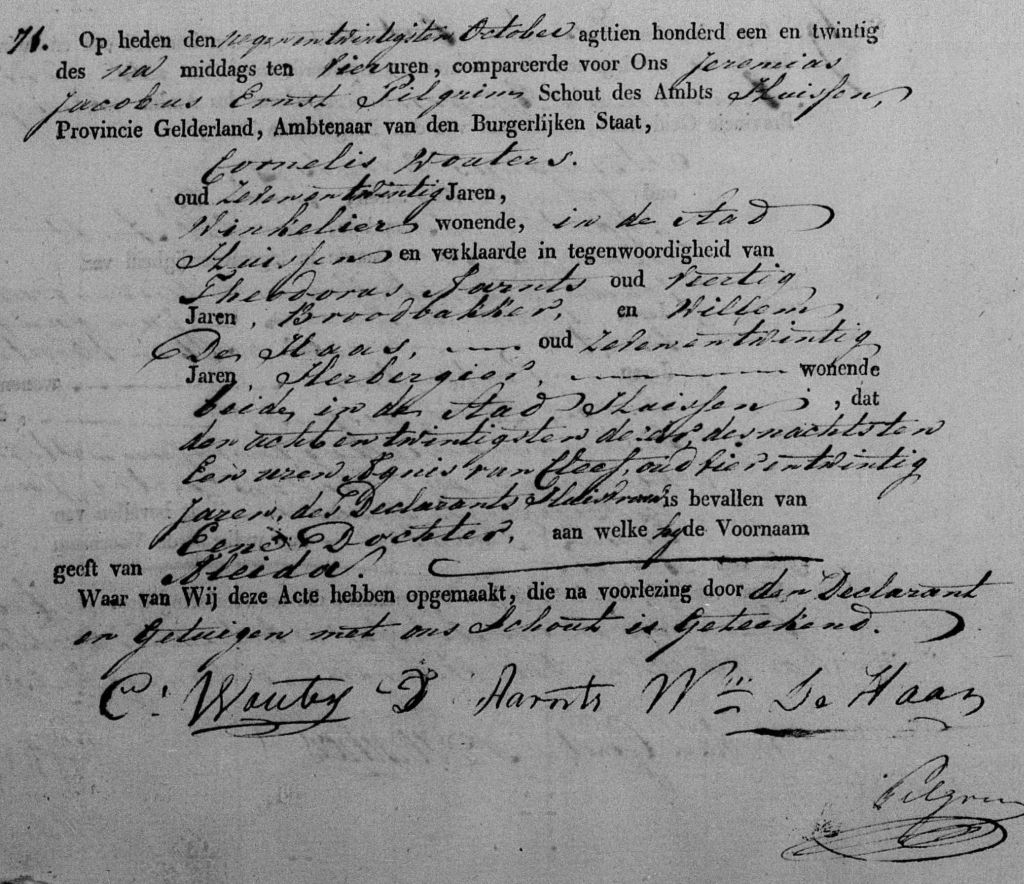 71. Op heden den negenentwintigsten October agttien honderd een en twintig
des na middags ten vier uren, compareerde voor Ons Jeremias
Jacobus Ernst Pilgrim Schout des Ambts Huissen,
Provincie Gelderland, Ambtenaar van den Burgerlijken Staat,
Cornelis Wouters.
oud Zevenentwintig Jaren,
Winkelier wonende, in de Stad
Huissen en verklaarde in tegenwoordigheid van
Theodorus Aarnts oud Viertig
Jaren, Broodbakker, en Willem
De Haas, oud Zevenentwintig
Jaren, Herbergier, wonende
beide in de Stad Huissen, dat
den achtentwintigsten dezer, des nachts ten
Een uren Agnis van Cleef, oud vierentwintig
Jaren, des Declarants Huisvrouw is bevallen van
Eene Dochter, aan welke hy de Voornaam
geeft van Aleida.
Waar van Wij deze Acte hebben opgemaakt, die na voorlezing door den Declarant
en Getuigen met ons Schout is Geteekend.
Cs. Wouters Ds Aarnts Wm De Haas
Pilgrim